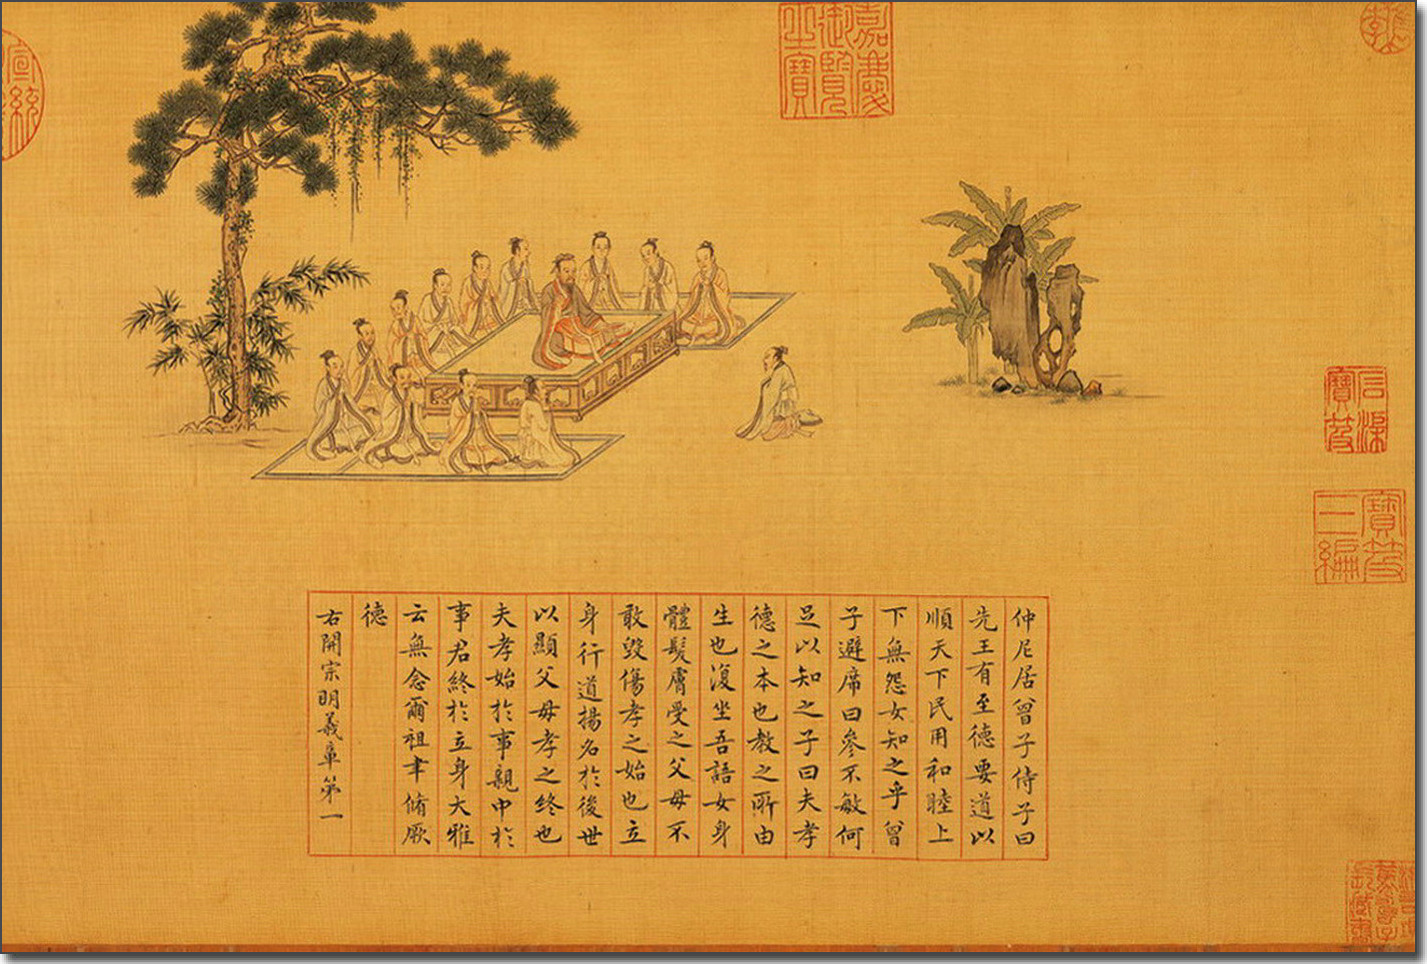 仲尼居曾子侍子曰
先王有至德要道以
順天下民用和睦上
下無怨女知之乎曾
子避席曰參不敏何
足以知之子曰夫孝
德之本也教之所由
生也復坐吾語女身
體髮膚受之父母不
敢毀傷孝之始也立
身行道揚名於後世
以顯父母孝之終也
夫孝始於事親中於
事君終於立身大雅
云無念爾祖聿脩厥
德
右開宗明義章第一
嘉慶
御覽
之寶
石渠
寶笈
寶笈
三編
宣統